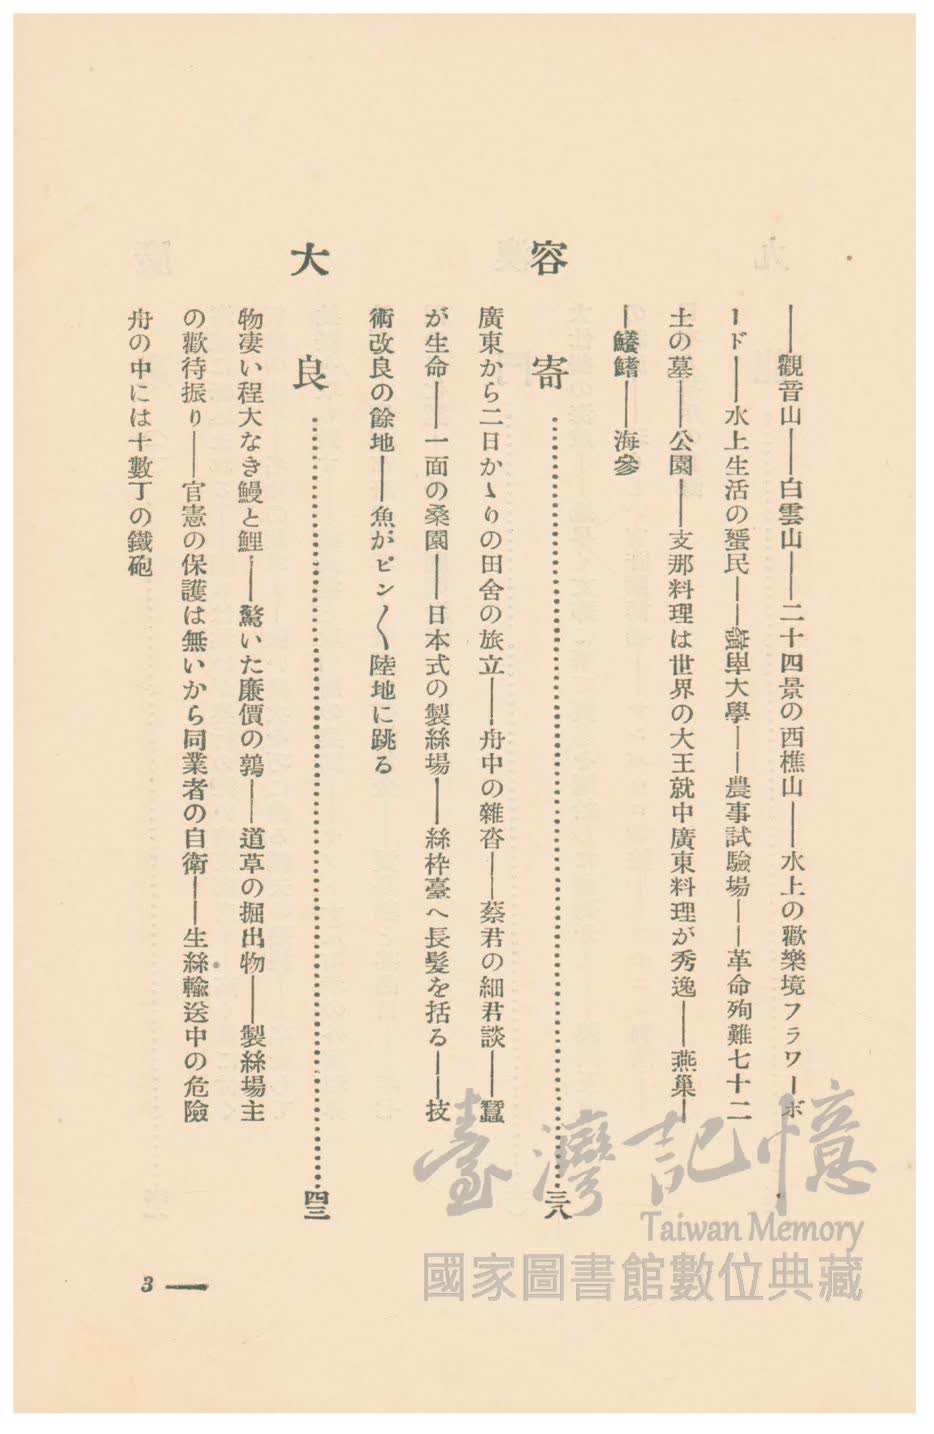 ——觀音山——白雲山——二十四景の西樵山——水上の歡樂境フラワーボ
ード——水上生活の蜑民——嶺南大學——農事試驗場——革命殉難七十二
士の墓——公園——支那料理は世界の大王就中廣東料理が秀逸——燕巢—
—鱶鰭——海參
容寄……三八
廣東から二日かゝりの田舍の旅立——舟中の雜沓——蔡君の細君談——蠶
が生命——一面の桑園——日本式の製絲場——絲枠臺へ長髮を括る——技
術改良の餘地——魚がピン〳〵陸地に跳る
大良……四三
物凄い程大なき鰻と鯉——驚いた廉價の鶉——道草の掘出物——製絲場主
の歡待振り——官憲の保護は無いから同業者の自衛——生絲輸送中の危險
舟の中には十數丁の鐵砲
3 —
臺灣記憶
Taiwan Memory
國家圖書館數位典藏